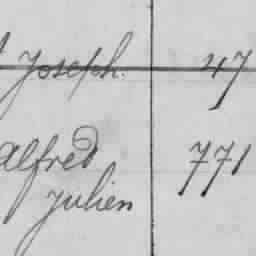 Joseph. 47
Alfred 771
Julien